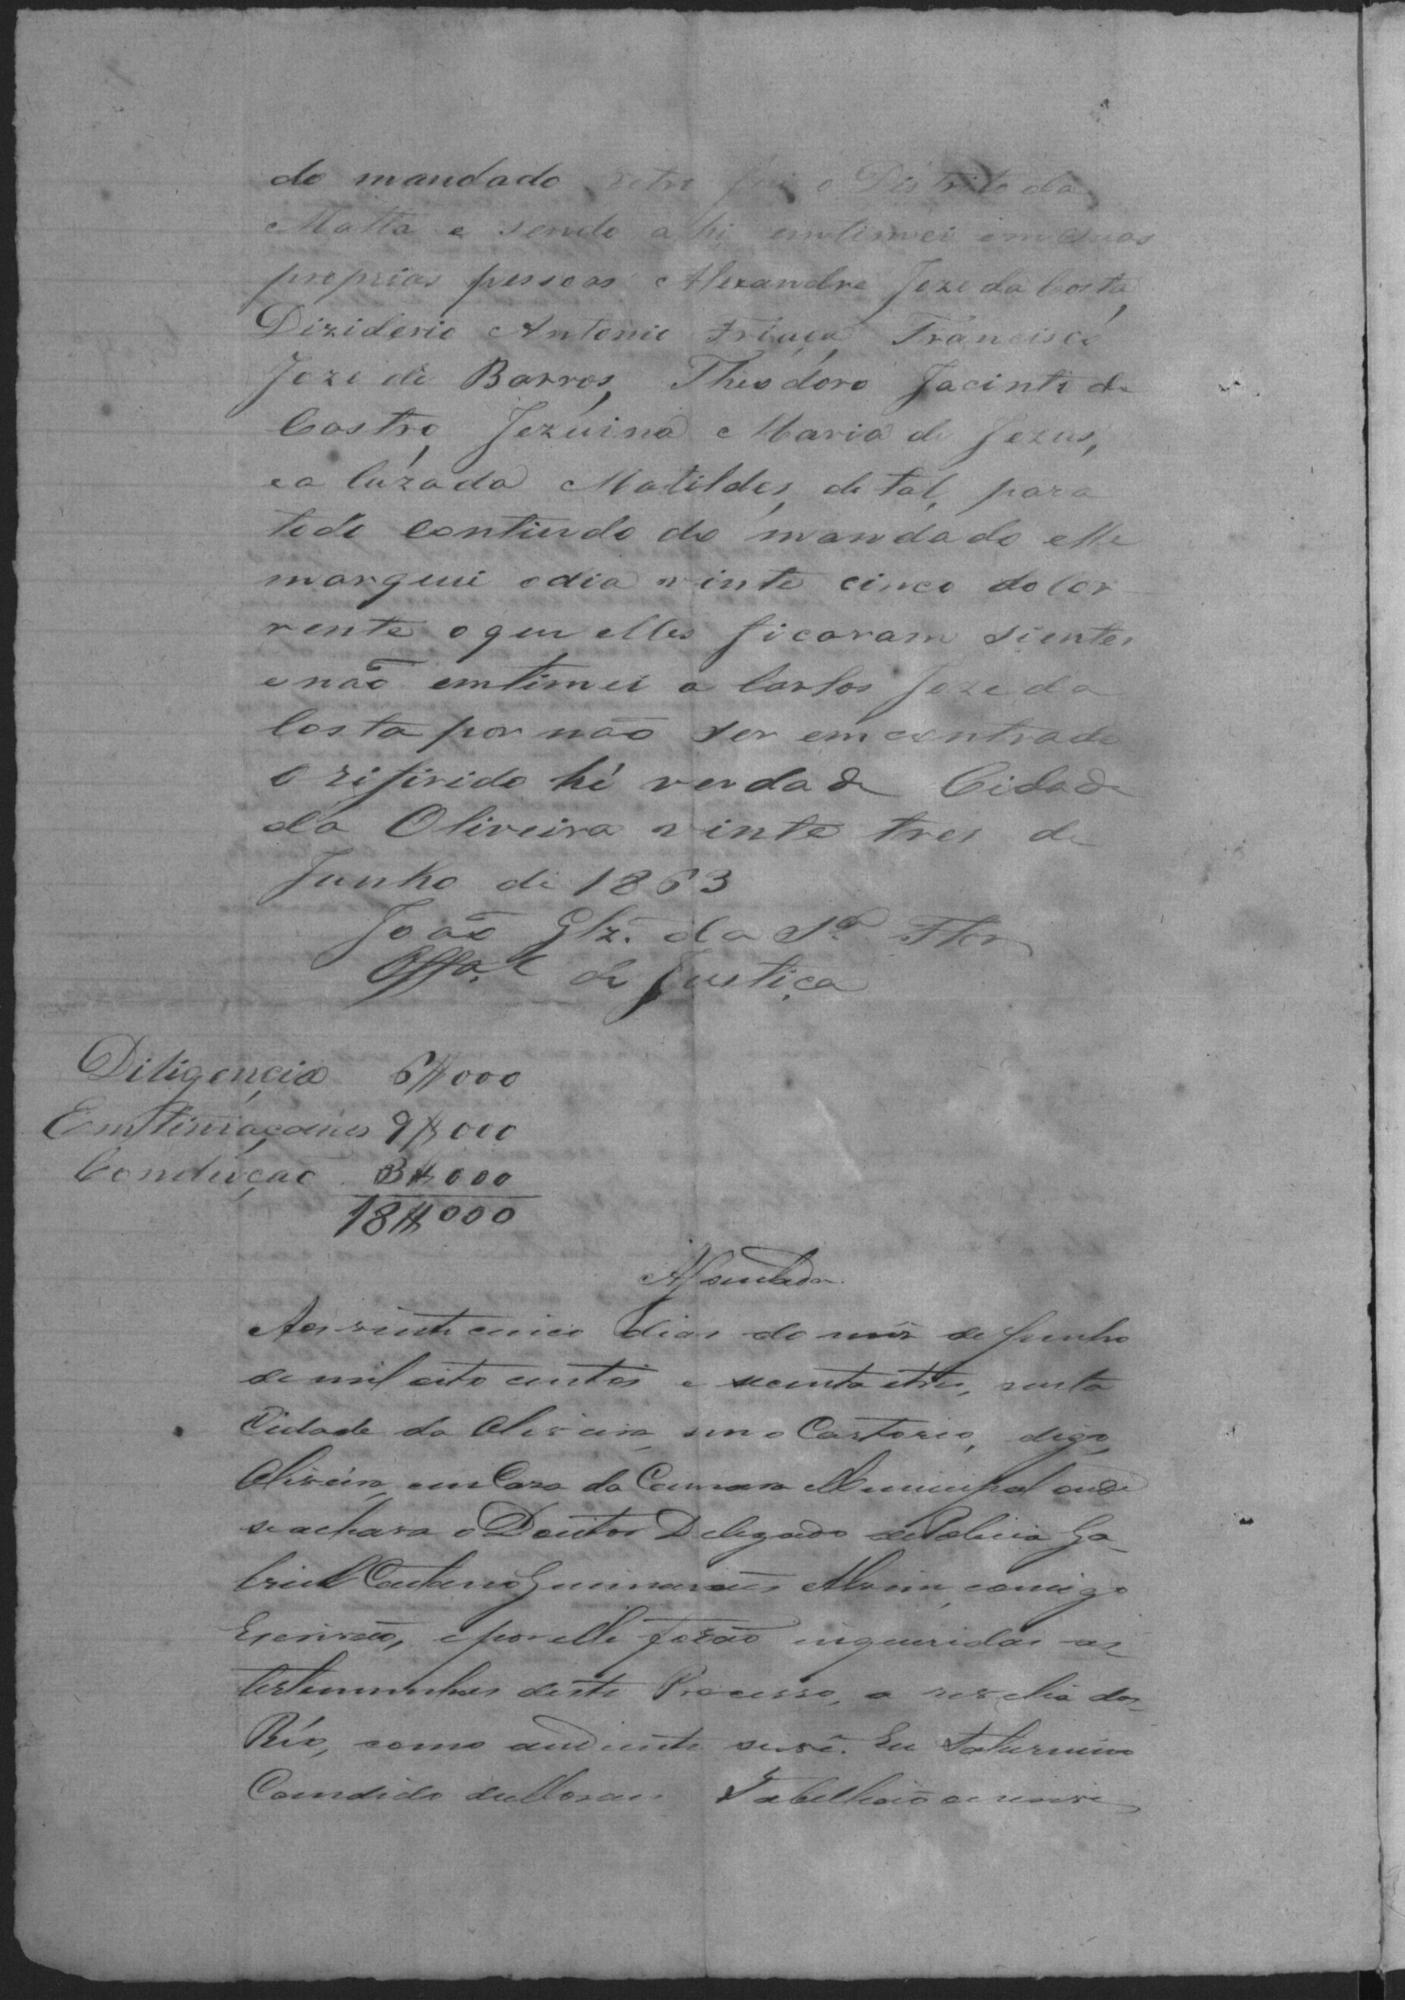 do mandado retro fui o Distrito da
Matta e sendo ahi emtimei em suas
proprias pessoas Alexandre Joze da Costa,
Diziderio Antonio Friaça, Francisco
Joze de Barros, Theodoro Jacinto de
Castro, Jezuina Maria de Jezus,
e a Matildes de tal, para
todo contiudo do mandado elle
marquei o dia vinte cinco do Cor
rente o que elles ficaram sientes
e não emtimei a Carlos Joze da
Costa por não ser emcontrado
o rifirido hé verdade Cidade
da Oliveira vinte tres de
Junho de 1863
João Glz. da Sa. Flor
Offal. de Justiça
Diligencia 6$000
Emtimaçoins 9$000
Condução 3$000
18$000
Assentada
Aos vinte cinco dias do mez de Junho
de mil oito centos e secenta e tres, nesta
Cidade da Oliveira, em o Cartorio, digo,
Oliveira, em Caza da Camara Municipal onde
se achava o Doutor Delegado de Policia Ga-
briel Caetano Guimarães Alvim, comigo
Escrivão, e por elle forão inqueridas as
testemunhas deste Processo, a revelia dos
Réos, como adiante se vê. Eu Saturnino
Candido de Moraes Tabellião o escrevi